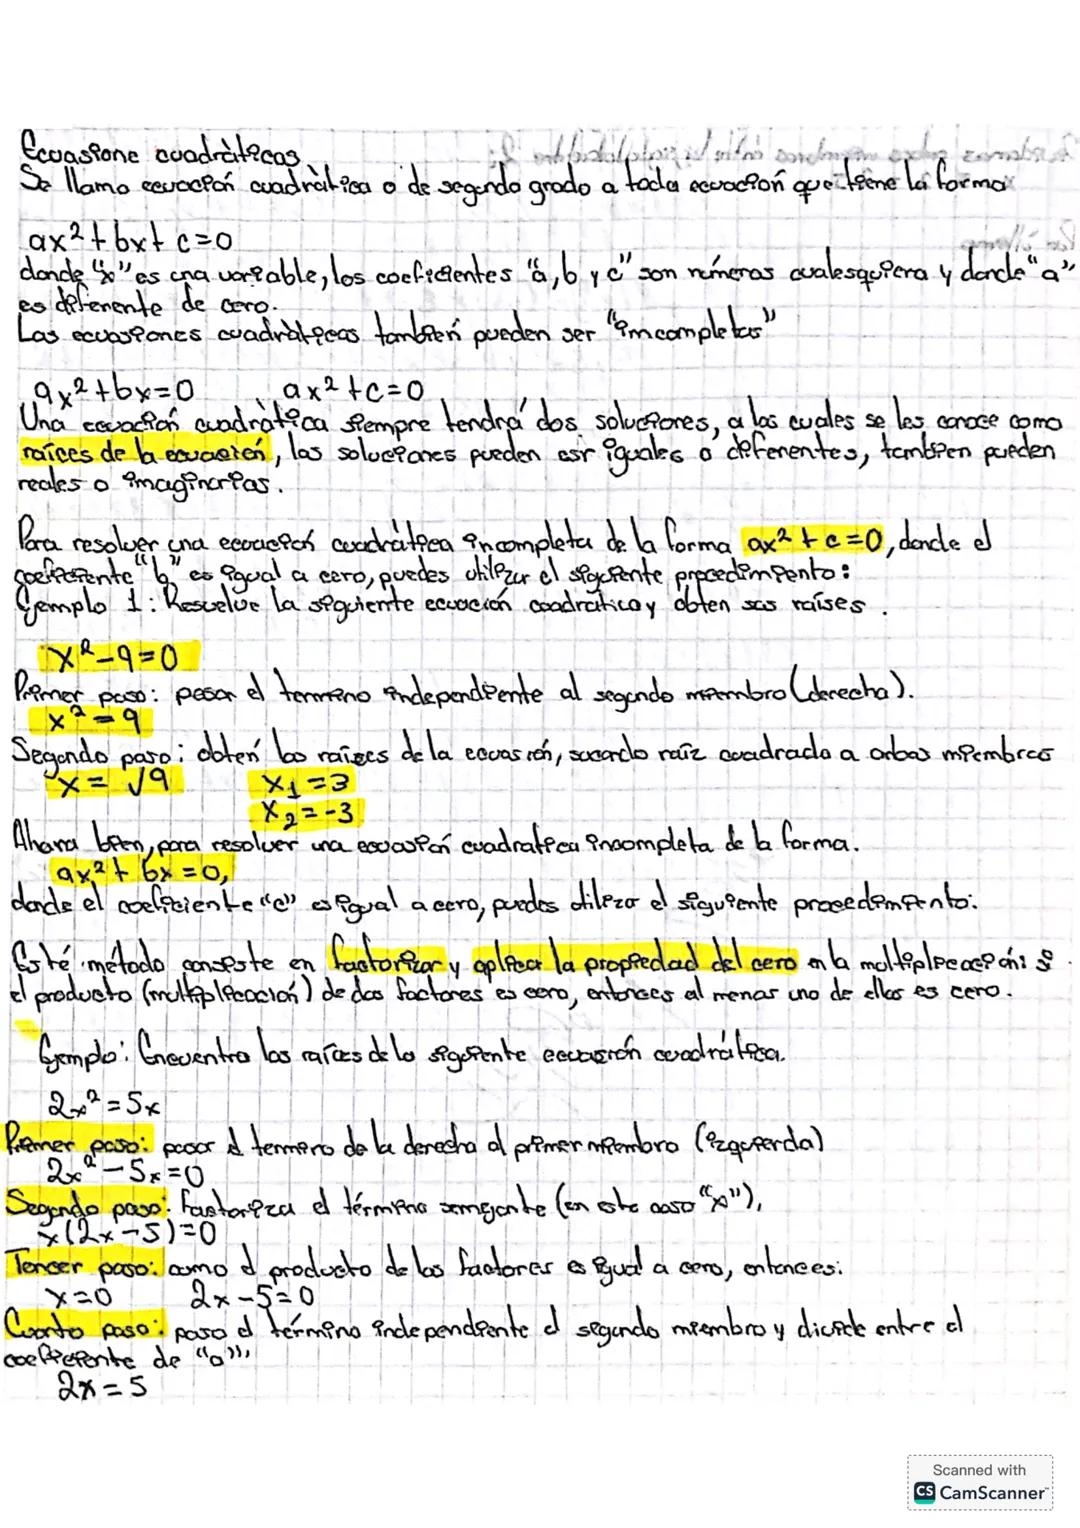 Ecuasione cuadràticas
Se llama ecuación cuadràtica o de segundo grado a toda ecuación que tiene la forma
ax²+bx+c=0
donde "x" es una variable, los coeficientes "a, b y c" son números cualesquiera y donde "a"
es diferente de cero.
Las ecuasiones cuadràticas tambien pueden ser "imcompletas"
ax²+bx=0 ax²+c=0
Una ecuación cuadràtica siempre tendrá dos soluciones, a las cuales se les conoce como
raíces de la ecuación, las soluciones pueden esir iguales o diferentes, tambien pueden
reales o imaginarias.
Para resolver una ecuación cuadràtica incompleta de la forma ax²+c=0, donde el
coeficiente "b" es igual a cero, puedes utilizar el siguiente procedimiento:
Ejemplo 1: Resuelve la siguiente ecuación cuadratica y obten sus raíses.
x²-9=0
Primer paso: pasar el termino independiente al segundo miembro (derecha).
x²=9
Segundo paso: obten las raíces de la ecuasión, sacando raíz cuadrada a anbos miembros
x=√9 x₁=3
x₂=-3
Ahora bien, para resolver una ecuasión cuadratica incompleta de la forma.
ax²+bx=0,
donde el coeficiente "c" es igual a cero, puedes utilizar el siguiente procedimiento:
Esté método consiste en factorizar y aplicar la propiedad del cero en la multiplicación: si
el producto (multiplicación) de dos factores es cero, entonces al menos uno de ellos es cero.
Ejemplo: Encuentra las raíces de la siguiente ecuasión cuadràtica.
2x²=5x
Primer paso: pasar el termino de la derecha al primer miembro (izquierda)
2x²-5x=0
Segundo paso: factoriza el término semejante (en este caso "x"),
x(2x-5)=0
Tercer paso: como el producto de los factores es igual a cero, entonces:
x=0 2x-5=0
Cuarto paso: pasa el término independiente al segundo miembro y divide entre el
coeficiente de "a",
2x=5
Scanned with
CS CamScanner